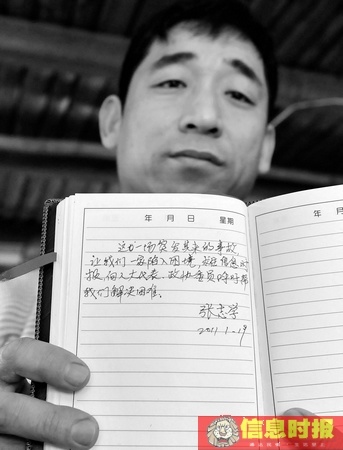 年 月 日 星期
一场突出其来的事故
让我们一家陷入困境,信息时
报向人大代表、政协委员呼吁帮
我们解决困难。
张志
2011.1.19
信息时报